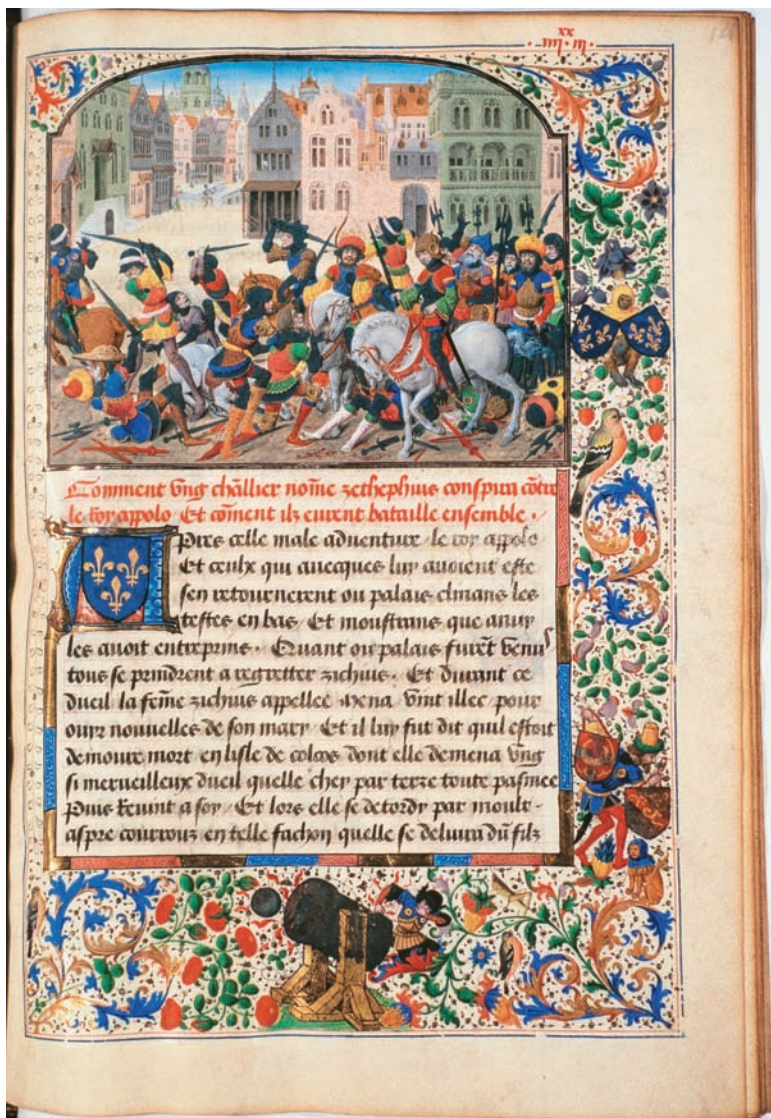 xx
·iiii·iii·
Comment vng chãllier nõme zethephius conspira cõtre
le roy appolo Et cõment ilz eurent bataille ensemble .
Apres celle male aduenture / le roy appolo
Et ceulx qui auecques luy auoient este
sen retournerent ou palais clinans les
testes en bas / Et moustrans que anuy
les auoit entreprins . Quant ou palais furẽt venu
tous se prindrent a regretter zichius . Et durant ce
dueil la fẽme zichius appellee vint illec pour
ouyr nouuelles de son mary Et il luy fut dit quil estoit
demoure mort en lisle de colcos dont elle demena vng
si merueilleux dueil quelle chey par terre toute pasmee
Puis reuint a soy / Et lors elle se detordy par moult -
aspre courrouz en telle fachon quelle se deliura dũ filz